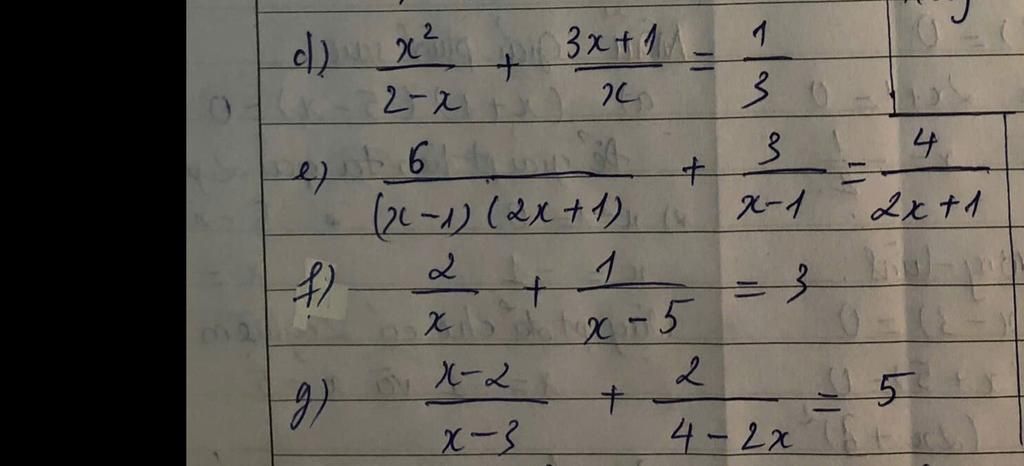 d) x²/(2-x) + (3x+1)/x = 1/3
e) 6/((x-1)(2x+1)) + 3/(x-1) = 4/(2x+1)
f) 2/x + 1/(x-5) = 3
g) (x-2)/(x-3) + 2/(4-2x) = 5